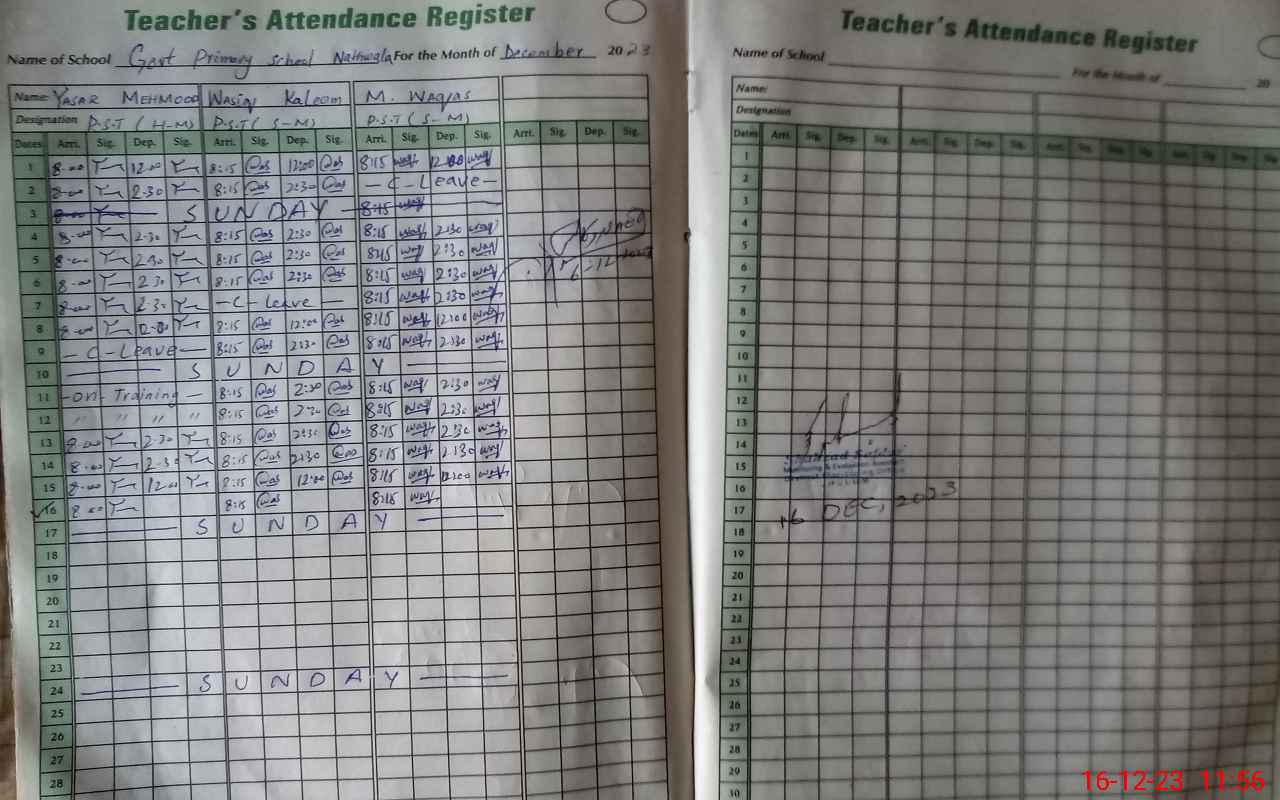 Teacher's Attendance Register
Name of School Govt Primary school Nathwala For the Month of December 2023
Name: YASAR MEHMOOD Wasiq Kaleem M. Waqas
Designation P.S.T (H-M) P.S.T (S-M) P.S.T (S-M)
Dates Arri. Sig. Dep. Sig. Arri. Sig. Dep. Sig. Arri. Sig. Dep. Sig. Arri. Sig. Dep. Sig.
1 8-00 12-00 8:15 12:00 8:15 12:00
2 8-00 2-30 8:15 2:30 - C - Leave -
3 SUNDAY
4 8-00 2-30 8:15 2:30 8:15 2:30
5 8-00 2-30 8:15 2:30 8:15 2:30
6 8-00 2-30 8:15 2:30 8:15 2:30
7 8-00 2-30 - C - leave - 8:15 2:30
8 8-00 8:15 12:00 8:15 12:00
9 - C - Leave - 8:15 2:30 8:15 2:30
10 SUNDAY
11 - on - Training - 8:15 2:30 8:15 2:30
12 " " " " 8:15 2:30 8:15 2:30
13 8-00 2-30 8:15 2:30 8:15 2:30
14 8-00 2-30 8:15 2:30 8:15 2:30
15 8-00 12-00 8:15 12:00 8:15 12:00
16 8-00 8:15 8:15
17 SUNDAY
18
19
20
21
22
23
24 SUNDAY
25
26
27
28
Teacher's Attendance Register
Name of School For the Month of 20
Name:
Designation
Dates Arri. Sig. Dep. Sig. Arri. Sig. Dep. Sig. Arri. Sig. Dep. Sig. Arri. Sig. Dep. Sig.
1
2
3
4
5
6
7
8
9
10
11
12
13
14
15
16
17
18
19
20
21
22
23
24
25
26
27
28
29
30
16 DEC, 2023
16-12-23 11:56